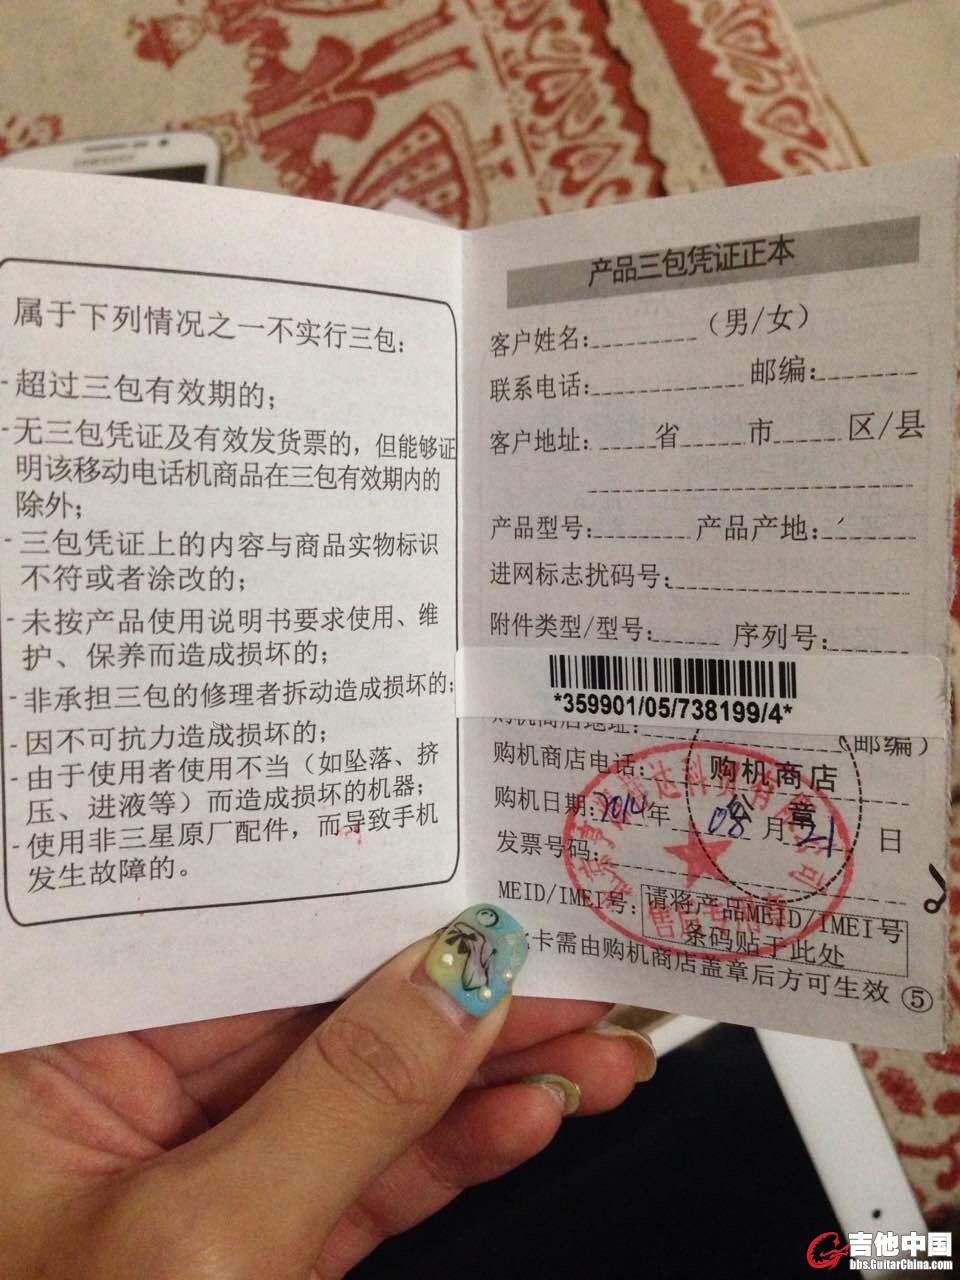 SAMSUNG
属于下列情况之一不实行三包:
-超过三包有效期的;
-无三包凭证及有效发货票的，但能够证
明该移动电话机商品在三包有效期内的
除外;
-三包凭证上的内容与商品实物标识
不符或者涂改的;
-未按产品使用说明书要求使用、维
护、保养而造成损坏的;
-非承担三包的修理者拆动造成损坏的;
-因不可抗力造成损坏的;
-由于使用者使用不当（如坠落、挤
压、进液等）而造成损坏的机器;
-使用非三星原厂配件，而导致手机
发生故障的。
产品三包凭证正本
客户姓名: （男/女）
联系电话: 邮编:
客户地址: 省 市 区/县
产品型号: 产品产地:
进网标志扰码号:
附件类型/型号: 序列号:
*359901/05/738199/4*
购机商店地址: （邮编）
购机商店电话:
购机商店
章
购机日期: 2014年 08月 21日
发票号码:
MEID/IMEI号: 请将产品MEID/IMEI号
条码贴于此处
卡需由购机商店盖章后方可生效 ⑤
吉他中国
bbs.GuitarChina.com